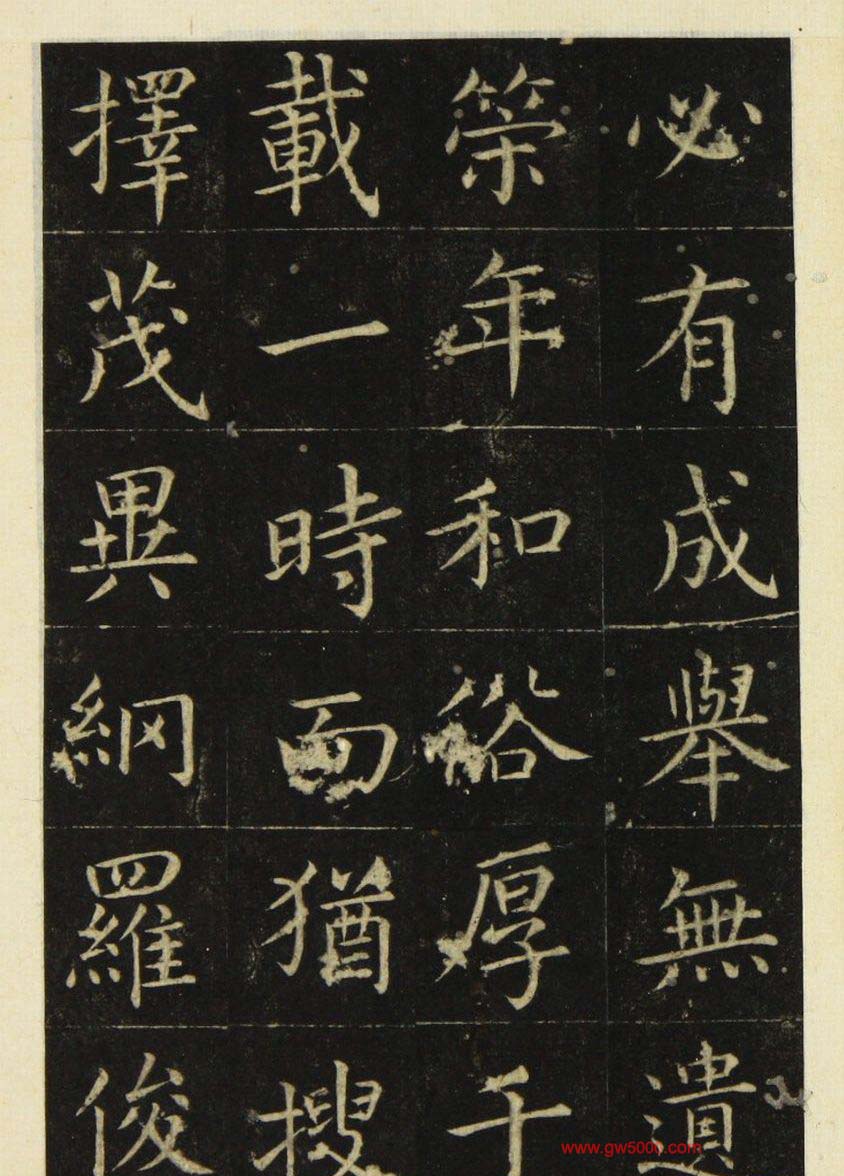 必有成舉無遺
策年和俗厚千
載一時而猶搜
擇茂異網羅俊
www.gw5000.com